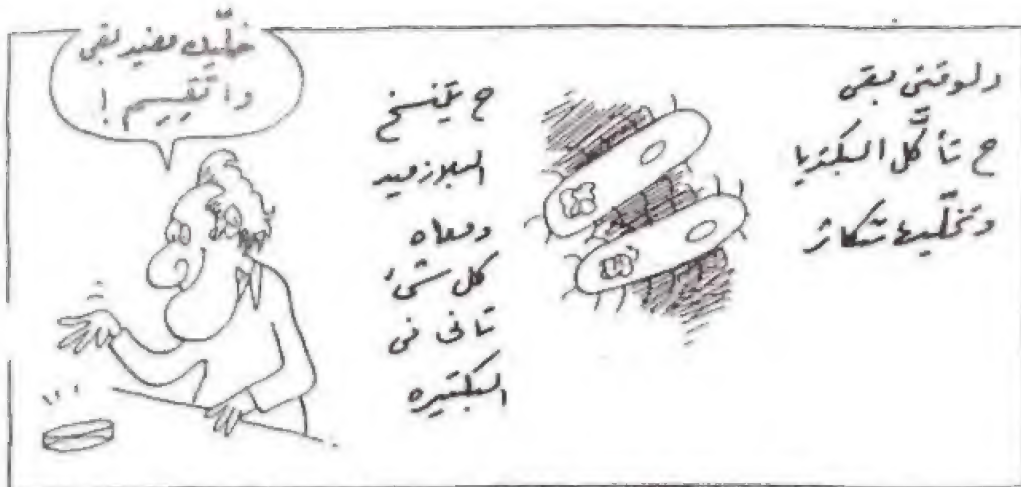 دلوقتى بقى
ح تأكّل البكتريا
وتخلّيها تتكاثر
ح يتنسخ
البلازميد
ومعاه
كل شئ
تانى فى
البكتيره
خلّيك مفيد بقى
واتقسم !